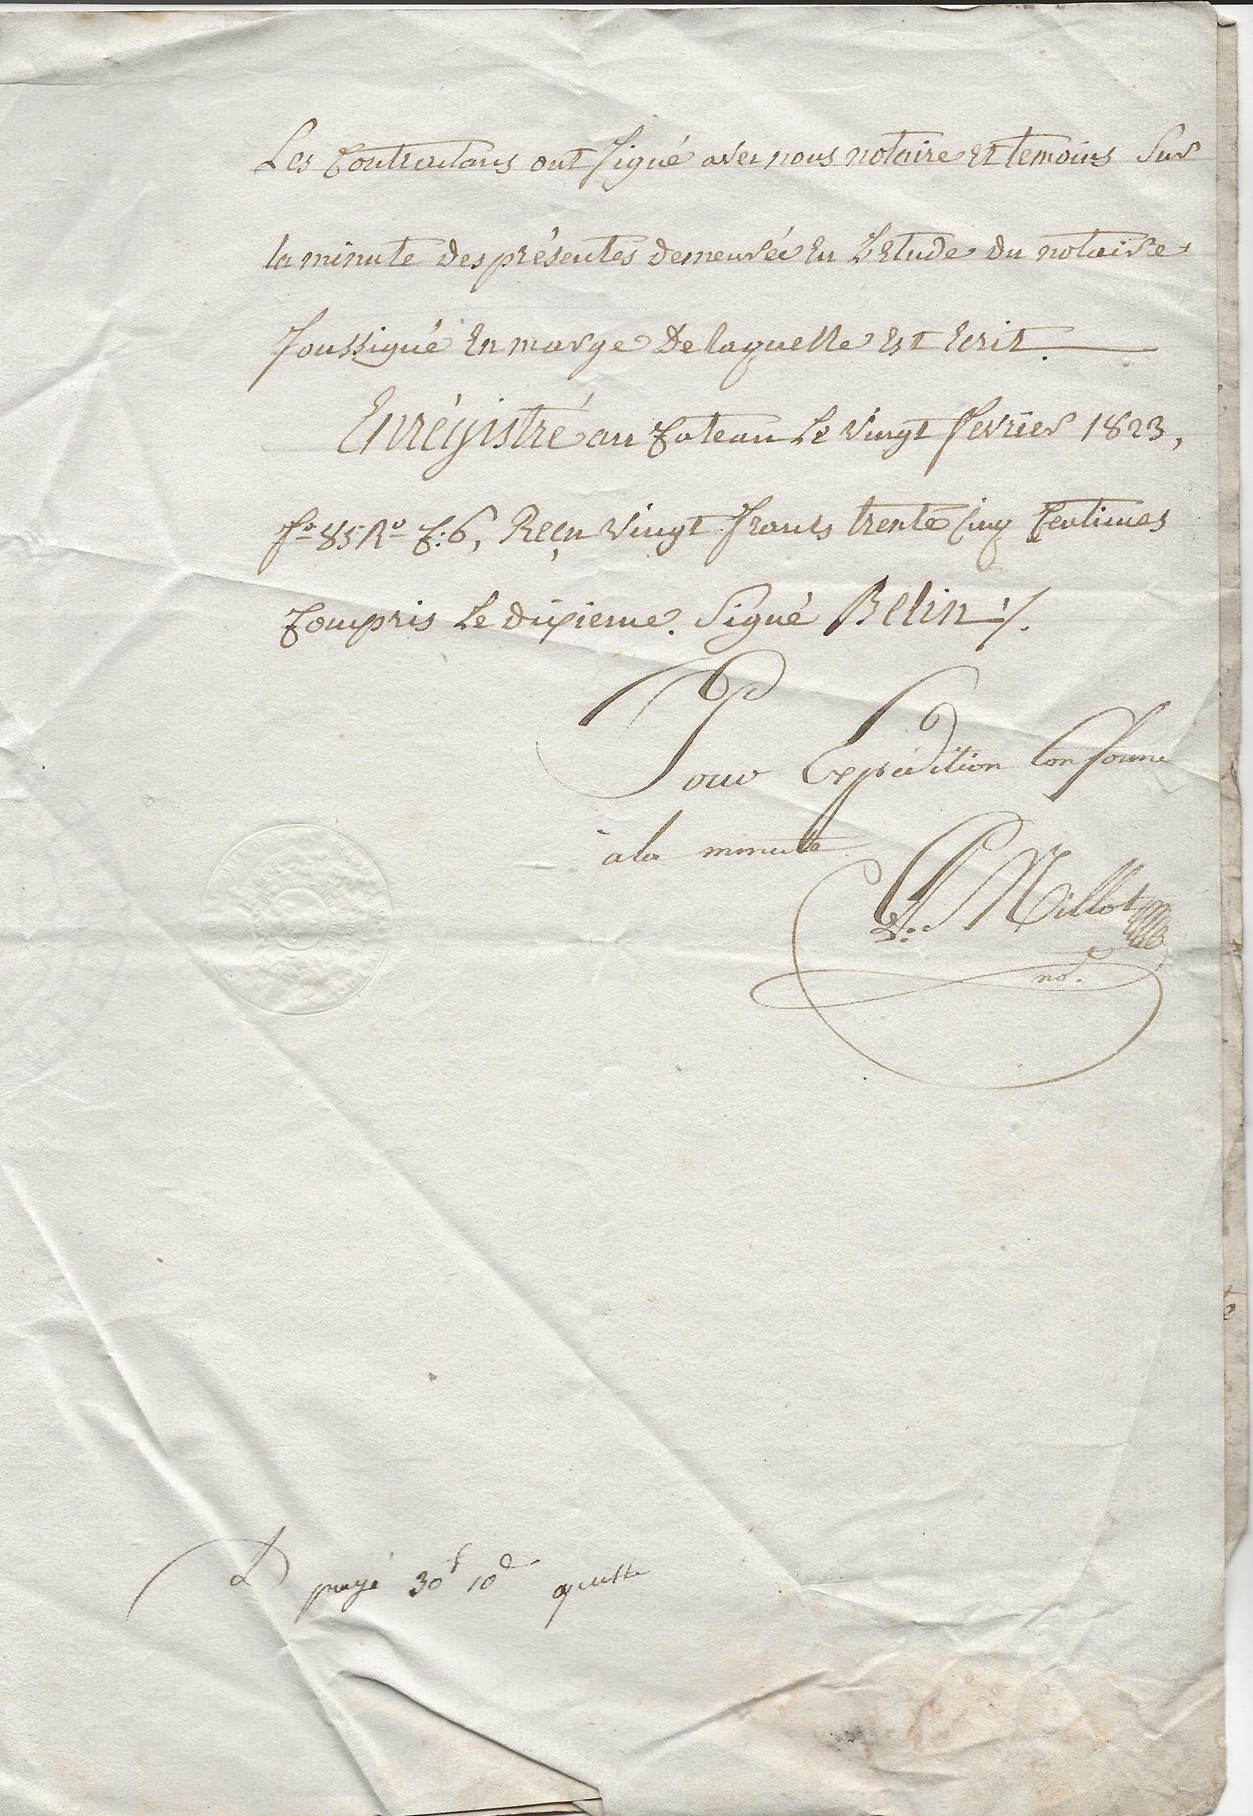 Les Contractans ont signé avec nous notaire Et temoins Sur
la minute des présentes demeurée En L'Etude du notaire
soussigné En marge De laquelle Est Ecrit.
Enrégistré au Cateau Le Vingt fevrier 1823,
fo. 85 Ro. C: 6, Reçu Vingt francs trente Cinq Centimes
Compris Le dixieme. Signé Belin ·/.
Pour Expédition Conforme
à la minute
Millot
no.
payé 30f 10d quitte